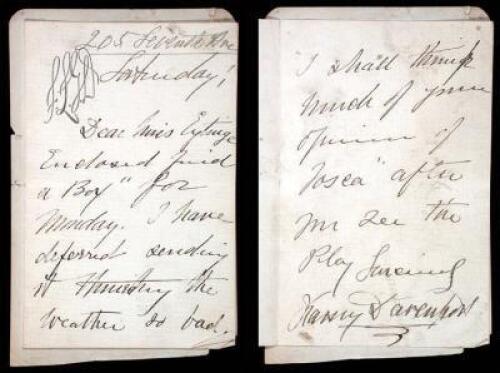 205 Seventh Ave
Saturday!
Dear Miss Eytinge
Enclosed find
a Box" for
Monday. I have
deferred sending
it thinking the
weather so bad.
"I shall think
much of your
opinion of
Tosca" after
you see the
Play Sincerely
Fanny Davenport